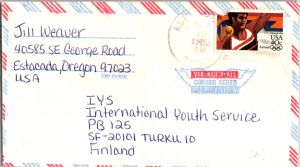 Jill Weaver
40585 SE George Road
Estacada, Oregon 97023
USA
ZIP CODE
USA
40c
VIA AIR MAIL
CORREO AEREO
PAR AVION
IYS
International Youth Service
PB 125
SF-20101 TURKU 10
Finland